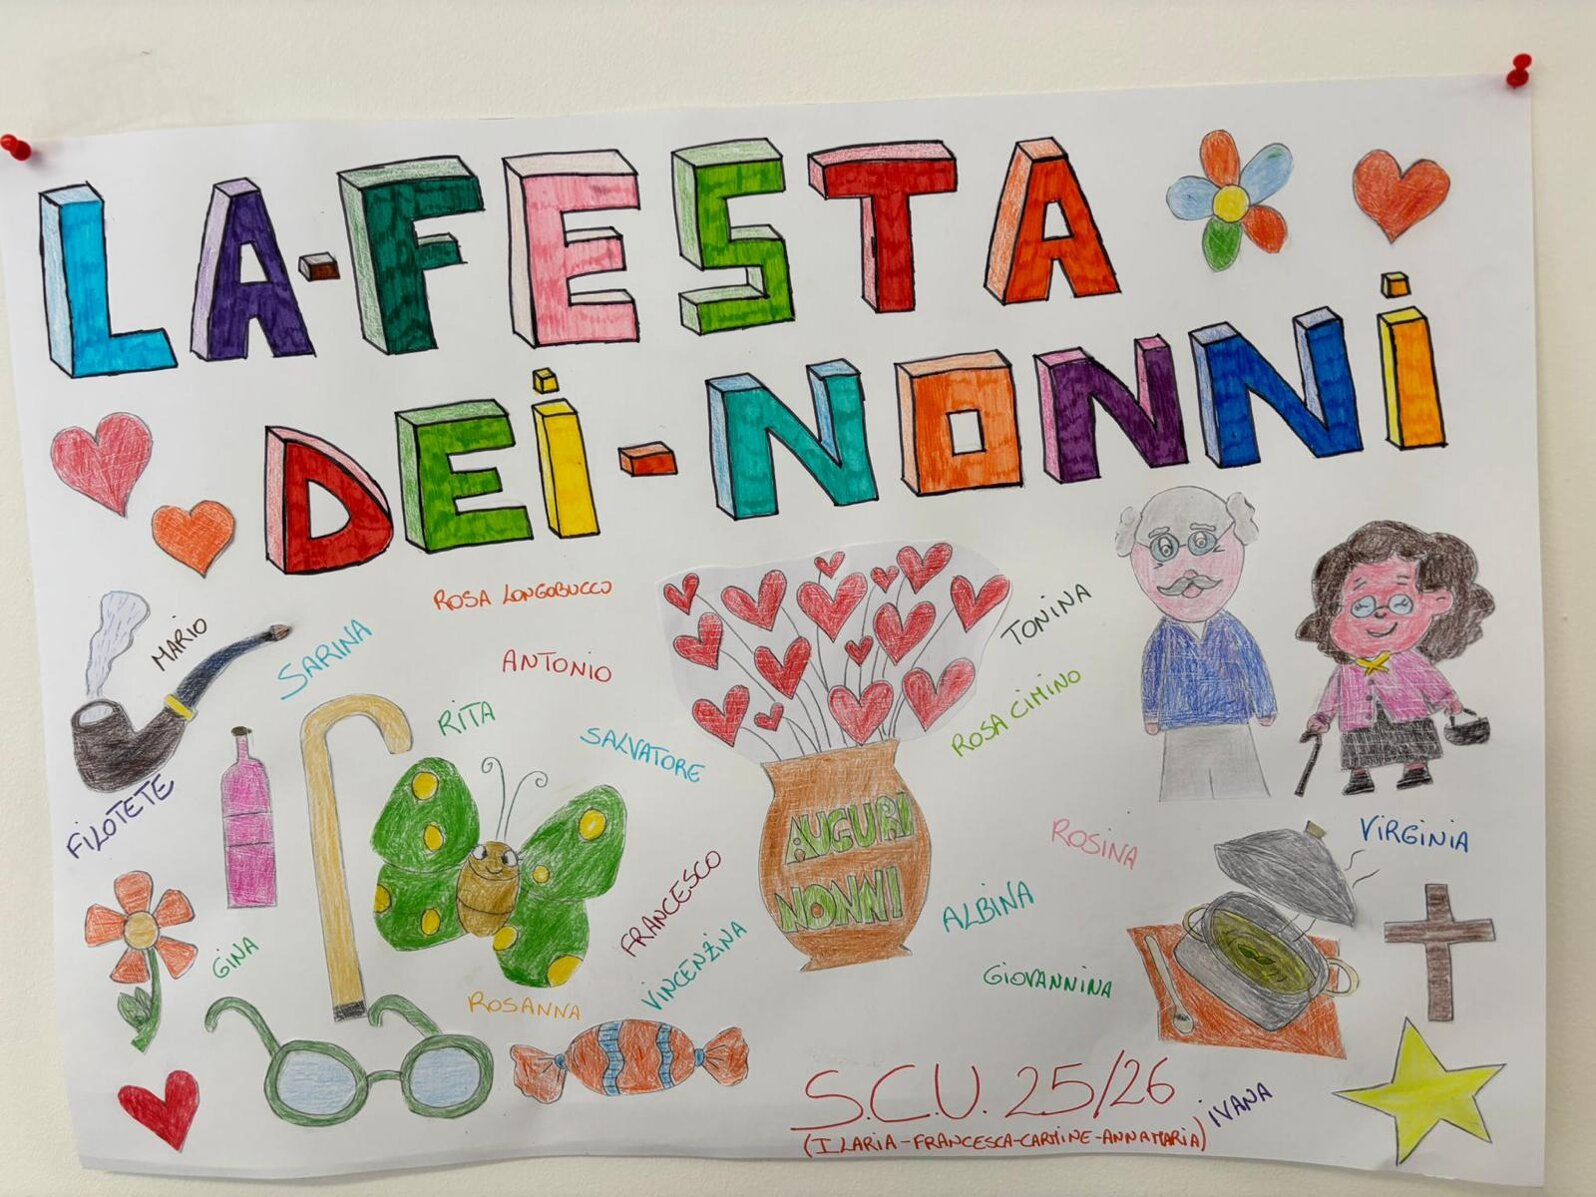 LA-FESTA
DEi-NONNi
ROSA LONGOBUCCO
MARIO
SARINA
ANTONIO
TONINA
RITA
SALVATORE
ROSA CIMINO
FILOTETE
AUGURI
NONNI
ROSINA
VIRGINIA
FRANCESCO
ALBINA
GINA
VINCENZINA
GIOVANNINA
ROSANNA
S.C.U. 25/26
(ILARIA-FRANCESCA-CARMINE-ANNAMARIA)
IVANA